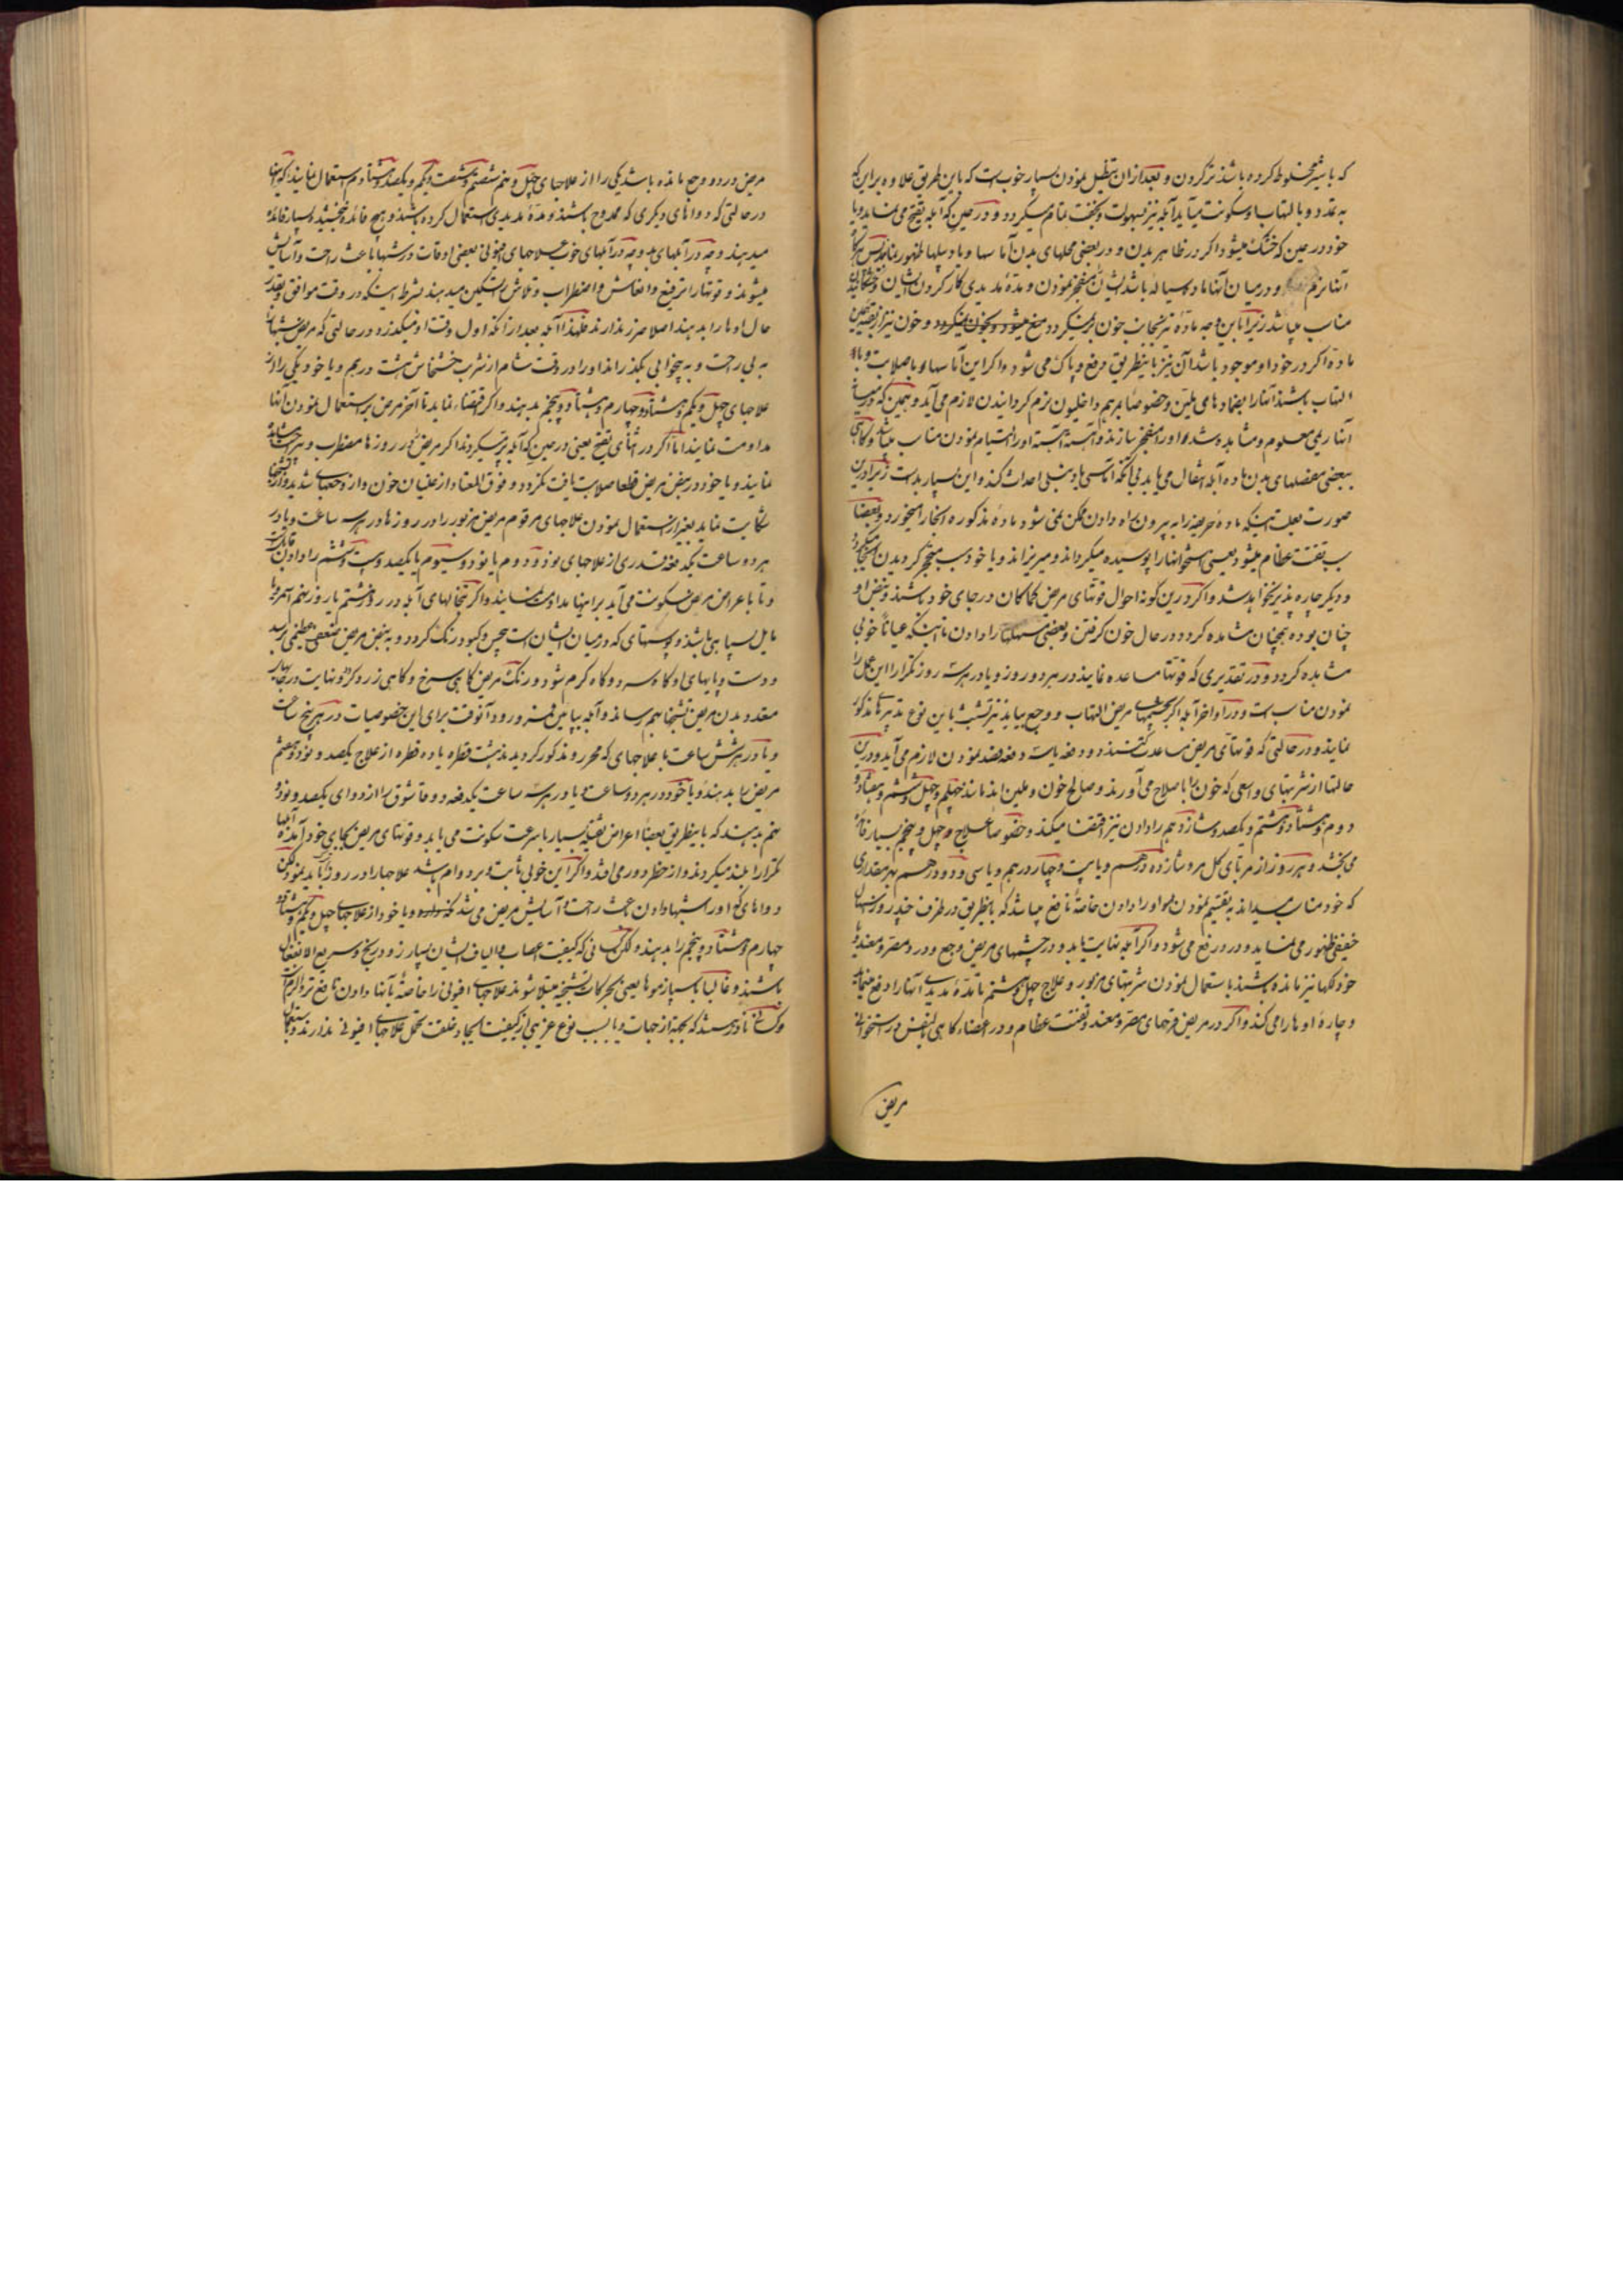 که با شیر مخلوط کرده باشند تر کردن و بعد از آن تنطیل نمودن بسیار خوبست که باین طریق علاوه بر این که
به تمدد و بالتهاب او سکونت میآید آبله نیز بسهولت و بخفت تمام میگردد و در حین که آبله بتقیح می نماید و یا
خود در حین که خشک میشود اگر در ظاهر بدن و در بعضی محلهای بدن آماسها و یا دملها ظهور نمایند پس
آنها نرم و در میان آنها ماده سیاله باشد ایشان منفجر نمودن و مدة مدیدی کار کردن ایشان
مناسب میباشد زیرا باین وجه ماده نیز بجانب خون بر نمیگردد و خون نیز از
ماده اگر در خود او موجود باشد آن نیز باینطریق دفع و پاک می شود و اگر این آماسها با صلابت و با
التهاب باشند آنها را بضمادهای ملین و خصوصا بمرهم داخلیون نرم گردانیدن لازم می آید و همین که در میان
آنها ریمی معلوم و مشاهده شد او را منفجر سازند و آهسته آهسته او را التیام نمودن مناسب میباشد و گاهی
ببعضی مفصلهای بدن ماده آبله انتقال می یابد بی آنکه آماس یا دنبلی احداث کند و این بسیار بد است زیرا درین
صورت بعلت اینکه ماده حریفه را به بیرون راه دادن ممکن نمی شود ماده مذکوره استخوان را میخورد و بعضا
سبب تفتت عظام میشود یعنی استخوانها را پوسیده میگرداند و میریزاند و یا خود سبب متحجر گردیدن
و دیگر چاره پذیر نخواهد شد و اگر درین گونه احوال قوتهای مریض کماکان در جای خود باشند و نبض او
چنان بوده همچنان مشاهده گردد در حال خون گرفتن و بعضی مسهلها را دادن تا اینکه عیانا خوبی
مشاهده گردد و در تقدیری که قوتها مساعده نمایند در هر دو روز و یا در هر سه روز تکرارا این عمل را
نمودن مناسب است و در اواخر آبله اگر بچشمهای مریض التهاب و وجع بیاید نیز تشبث باین نوع تدبیرهای مذکور
نمایند و در حالتی که قوتهای مریض مساعدت کنند دو دفعه یا سه دفعه فصد نمودن لازم می آید و درین
حالتها از شربتهای واسعی که خون را باصلاح می آورند و صالح خون و ملین اند مانند چهلم و چهل و ششم و هفتاد و
دوم و هشتاد و هشتم و یکصد و شانزدهم را دادن نیز اقتضا میکند و خصوصا علاج چهل و پنجم بسیار فائده
می بخشد و هر روز از مربای گل سرخ شانزده درهم و یا بیست و چهار درهم و یا سی و دو درهم بهر مقداری
که خود مناسب میداند به تقسیم نمودن او را دادن خاصة نافع میباشد که باینطریق در ظرف چند روز اسهال
خفیفی ظهور می نماید و درد رفع می شود و اگر آبله نهایت یابد و در چشمهای مریض وجع و درد مضر و مفسد و یا
خود لکها نیز مانده باشند باستعمال نمودن شربتهای مزبور و علاج چهل و هشتم تا مدة مدیدی آنها را دفع مینماید
و چاره او را می کند و اگر در مریض قرحهای مضر و مفسد و تفتت عظام و در اعضاء گاهی بالنفس در استخوانی
مریض
مریض درد و وجع مانده باشد یکی را از علاجهای چهل و پنجم شصتم و شصت و یکم و یکصد و هشتاد و دوم استعمال نمایند که اینها
در حالتی که دواهای دیگری که ممدوح باشند و مدة مدیدی استعمال کرده باشند و هیچ فائده نبخشیده بسیار فائده
میدهند و چه در آبلهای بد و چه در آبلهای خوب علاجهای افیونی بعضی اوقات در شبها باعث راحت و آسایش
میشوند و قوتها را ترفیع و انعاش و اضطراب و تلاش را تسکین میدهند بشرط اینکه در وقت موافق و بقدر
حال او را بدهند اصلا ضرر ندارند فلهذا آبله بعد از آنکه اول وقت او میگذرد و در حالتی که مریض شبها را
به بی راحت و به بیخوابی بگذراند او را در وقت شام از شربت خشخاش هشت درهم و یا خود یکی را از
علاجهای چهل و یکم و هشتاد و چهارم و هشتاد و پنجم بدهند و اگر اقتضاء نماید تا آخر مرض بر استعمال نمودن آنها
مداومت نمایند اما اگر در اثنای تقیح یعنی در حین که آبله پر میگردند اگر مریض در روزها مضطرب و
نمایند و یا خود در نبض مریض قطعا صلابت یافت نگردد و فوق المعتاد از غلیان خون و از وجعهای شدید
شکایت نماید بغیر از استعمال نمودن علاجهای مرقوم مریض مزبور را در روزها در هر سه ساعت و یا در
هر دو ساعت یکدفعه قدری از علاجهای نود و دوم یا نود و سیوم یا یکصد و بیست و ششم را دادن
و تا باعراض مرض سکونت می آید بر اینها مداومت نمایند و اگر تبخالهای آبله در روز هشتم یا روز نهم اسمر و یا
مایل بسیاهی باشد و پوستهای که در میان ایشان است چین و کبود رنگ گردد و به نبض مریض ضعف عظیمی رسد
و دست و پایهای او گاه سرد و گاه گرم شود و رنگ مریض گاهی سرخ و گاهی زرد گردد نهایت در
مقدد بدن مریض تشنجها بهم رساند و آبله بپایین فرو رود آنوقت برای این خصوصیات در هر پنج ساعت
و یا در هر شش ساعت با علاجهای که محرر و مذکور گردیدند هشت قطره یا ده قطره از علاج یکصد و نود و هفتم
مریض را بدهند و یا خود در هر دو ساعت و یا در هر سه ساعت یکدفعه دو قاشوق را از دوای یکصد و نود و
پنجم بدهند که باینطریق بعضا اعراض ثقیله بسیار با سرعت سکونت می یابد و قوتهای مریض بجای خود آمده
تکرارا بلند میگردند و از خطر دور می افتد و اگر این خوبی ثابت و بر دوام باشد علاجها را در روز باید نمود
دواهای که او را شبها دادن باعث راحت و آسایش مریض می شد و یا خود از علاجهای چهل و یکم و هشتاد و
چهارم و هشتاد و پنجم را بدهند و لکن کسانی که کیفیت اعصاب و الیاف ایشان بسیار زود رنج و سریع الانفعال
باشند و غالبا بسپازموها یعنی بحرکات تشنجیه مبتلا شوند علاجهای افیونی را خاصة بآنها دادن نافع تر و الزم است
و کسانی نادر هستند که بجهة از جهات و یا بسبب نوع غریبی از کیفیت ایجاد و خلقت تحمل علاجهای افیونی ندارند و